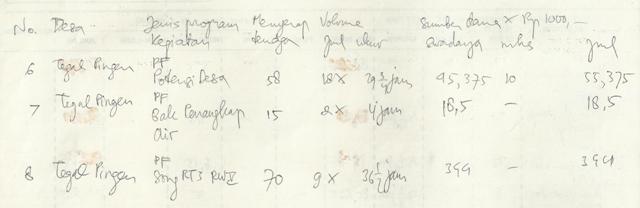 No. Desa Jenis program Menyerap Volume Sumber dana x Rp 1000,-
Kegiatan tenaga jml ukur swadaya jml
6 Tegal Pingen PF
Potensi Desa 58 18 x 29 3/4 jam 45,375 10 55,375
7 Tegal Pingen PF
Bak Penangkap 15 2 x 4 jam 18,5 - 18,5
air
8 Tegal Pingen PF
RT3 RW V 70 9 x 36 1/2 jam 394 - 394